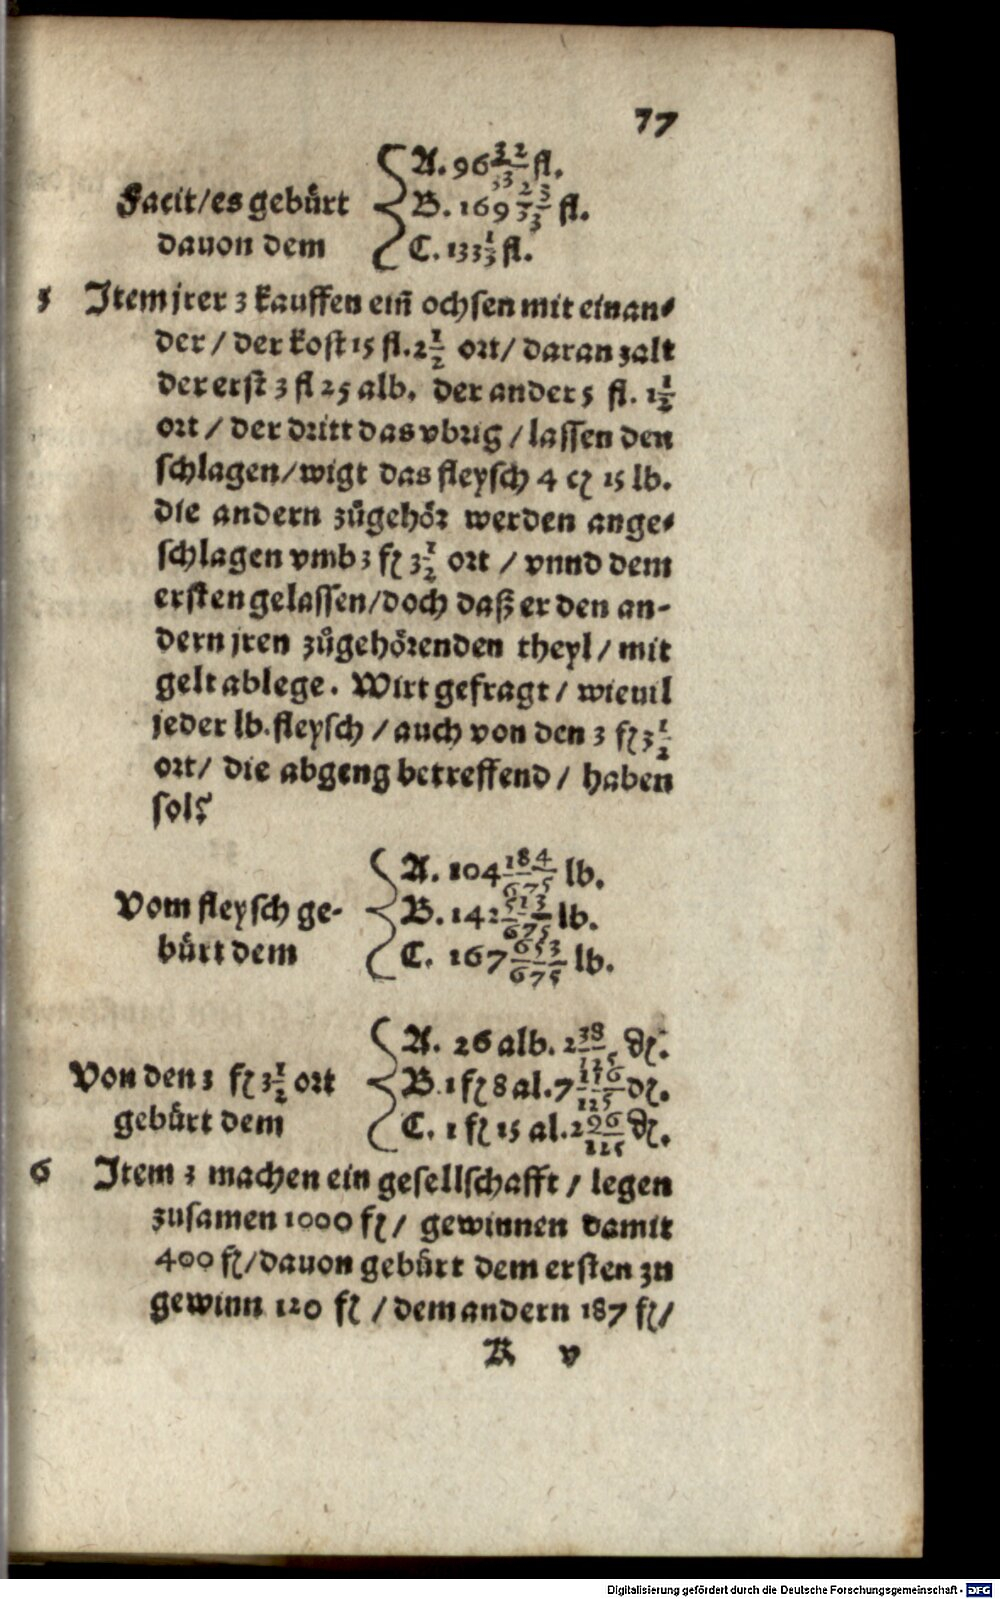 77
Facit/es gebürt { A. 96 32/33 fl.
B. 169 23/33 fl.
dauon dem C. 133 1/3 fl.
5 Item jrer 3 kauffen ein̄ ochsen mit einan⸗
der / der kost 15 fl. 2 1/2 ort / daran zalt
der erst 3 fl 25 alb. der ander 5 fl. 1 1/2
ort / der dritt das vbrig / lassen den
schlagen / wigt das fleysch 4 cʒ 15 lb.
die andern zůgehör werden ange⸗
schlagen vmb 3 fl 3 1/2 ort / vnnd dem
ersten gelassen / doch daß er den an-
dern jren zůgehörenden theyl / mit
gelt ablege. Wirt gefragt / wieuil
jeder lb. fleysch / auch von den 3 fl 3 1/2
ort / die abgeng betreffend / haben
sol?
A. 104 184/675 lb.
Vom fleysch ge- { B. 142 513/675 lb.
bürt dem C. 167 653/675 lb.
A. 26 alb. 2 38/125 ₰.
Von den 3 fl 3 1/2 ort { B. 1 fl 8 al. 7 116/125 ₰.
gebürt dem C. 1 fl 15 al. 2 96/125 ₰.
6 Item 3 machen ein gesellschafft / legen
zusamen 1000 fl / gewinnen damit
400 fl / dauon gebürt dem ersten zu
gewinn 120 fl / dem andern 187 fl /
K v
Digitalisierung gefördert durch die Deutsche Forschungsgemeinschaft - DFG